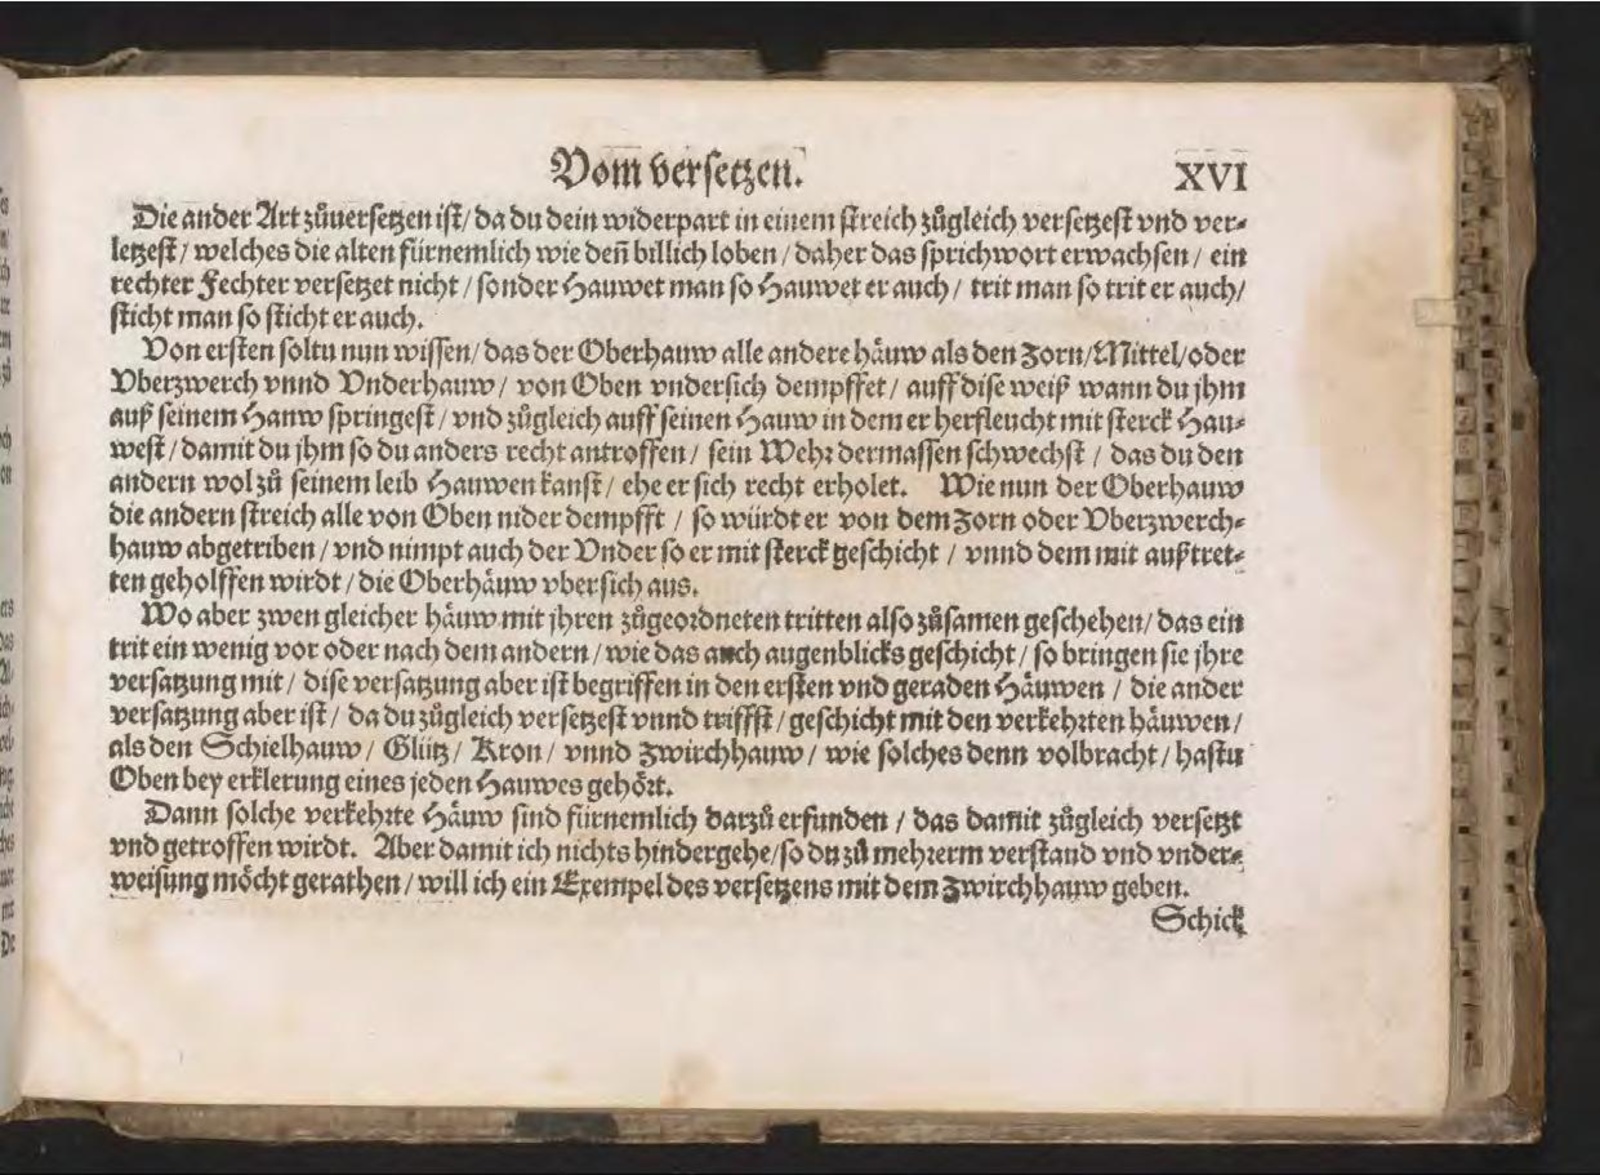 Vom versetzen.
XVI
Die ander Art zůuersetzen ist/ da du dein widerpart in einem streich zůgleich versetzest vnd ver⸗
letzest / welches die alten fürnemlich wie deñ billich loben / daher das sprichwort erwachsen / ein
rechter Fechter versetzet nicht / sonder Hauwet man so Hauwet er auch / trit man so trit er auch/
sticht man so sticht er auch.
Von ersten soltu nun wissen/ das der Oberhauw alle andere häuw als den Zorn/Mittel/oder
Vberzwerch vnnd Vnderhauw / von Oben vndersich dempffet / auff dise weiß wann du jhm
auß seinem Hanw springest / vnd zůgleich auff seinen Hauw in dem er herfleucht mit sterck Hau⸗
west / damit du jhm so du anders recht antroffen / sein Wehr dermassen schwechst / das du den
andern wol zů seinem leib Hauwen kanst / ehe er sich recht erholet. Wie nun der Oberhauw
die andern streich alle von Oben nider dempfft / so würdt er von dem Zorn oder Vberzwerch⸗
hauw abgetriben / vnd nimpt auch der Vnder so er mit sterck geschicht / vnnd dem mit außtret⸗
ten geholffen wirdt / die Oberhäuw vbersich aus.
Wo aber zwen gleicher häuw mit jhren zůgeordneten tritten also zůsamen geschehen/ das ein
trit ein wenig vor oder nach dem andern / wie das auch augenblicks geschicht / so bringen sie jhre
versatzung mit / dise versatzung aber ist begriffen in den ersten vnd geraden Häuwen / die ander
versatzung aber ist / da du zůgleich versetzest vnnd triffst / geschicht mit den verkehrten häuwen /
als den Schielhauw / Glütz / Kron / vnnd Zwirchhauw / wie solches denn volbracht / hastu
Oben bey erklerung eines jeden Hauwes gehört.
Dann solche verkehrte Häuw sind fürnemlich darzů erfunden / das damit zůgleich versetzt
vnd getroffen wirdt. Aber damit ich nichts hindergehe/so du zů mehrerm verstand vnd vnder⸗
weisung möcht gerathen / will ich ein Exempel des versetzens mit dem Zwirchhauw geben.
Schick